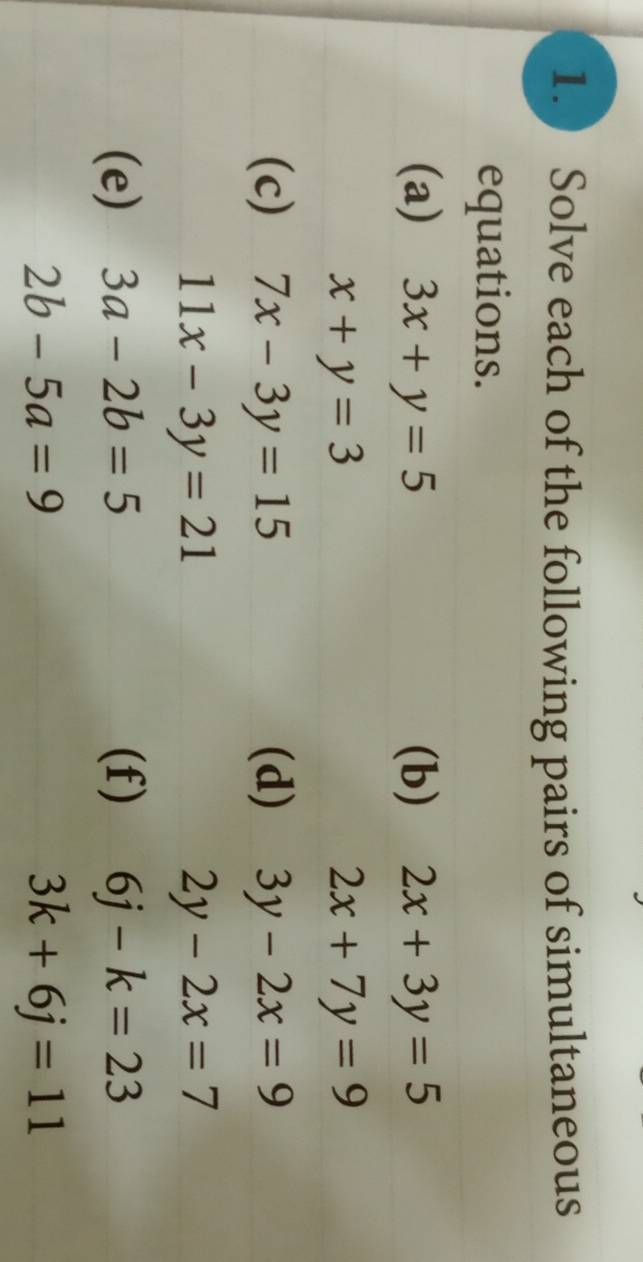 1. Solve each of the following pairs of simultaneous
equations.
(a) 3x + y = 5 (b) 2x + 3y = 5
x + y = 3 2x + 7y = 9
(c) 7x – 3y = 15 (d) 3y – 2x = 9
11x – 3y = 21 2y – 2x = 7
(e) 3a – 2b = 5 (f) 6j – k = 23
2b – 5a = 9 3k + 6j = 11